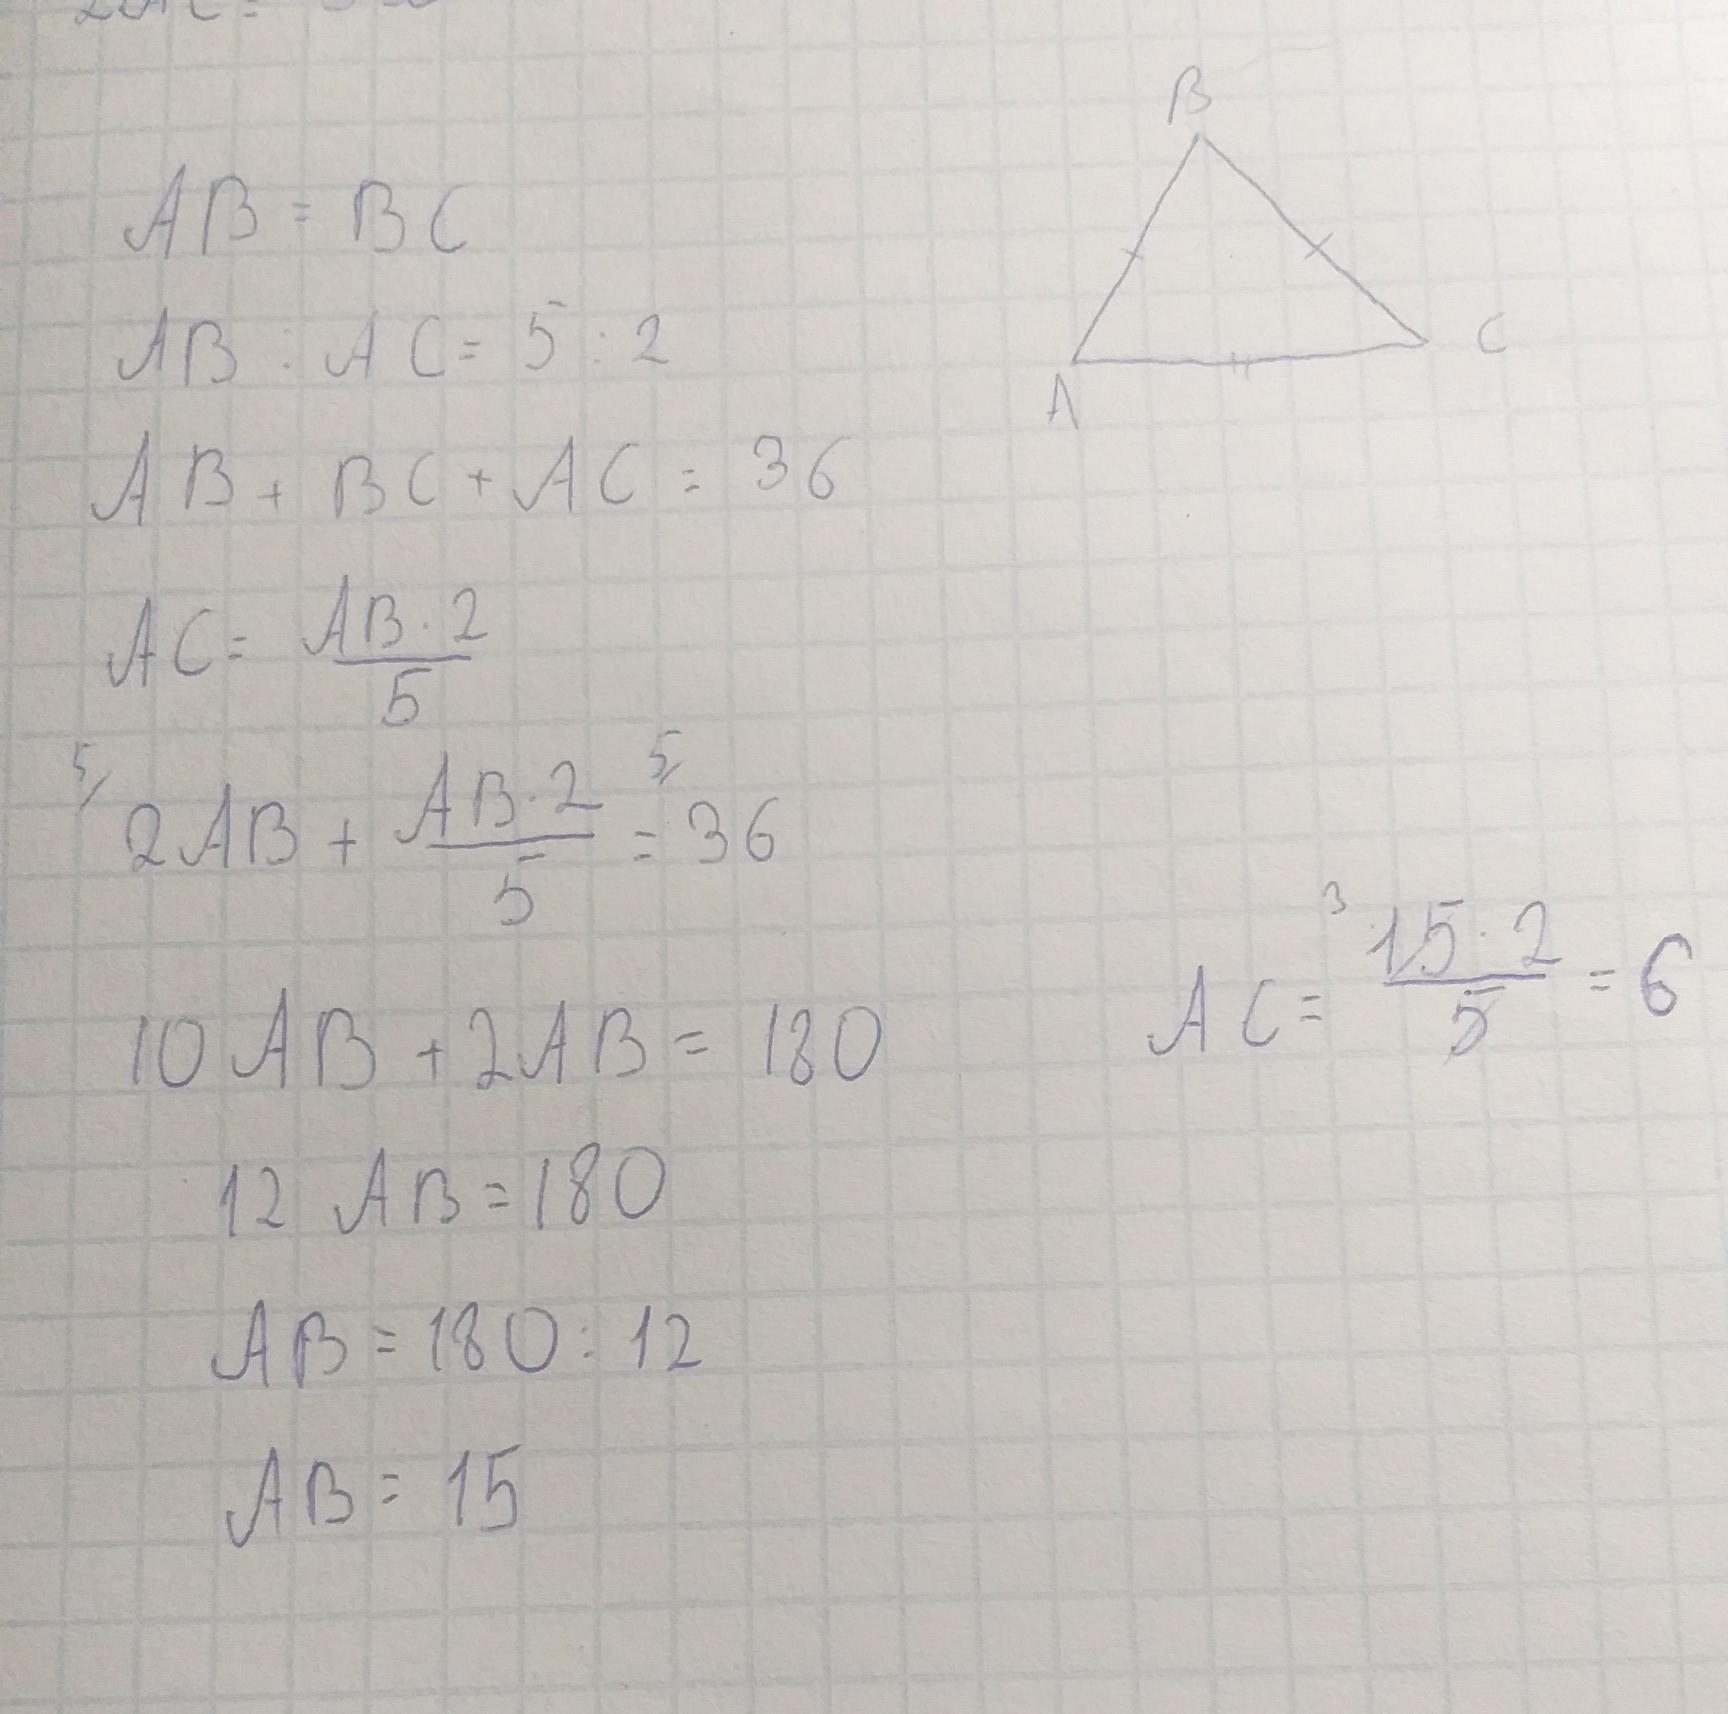 AB = BC
AB : AC = 5 : 2
AB + BC + AC = 36
AC = AB · 2 / 5
5/ 2AB + AB · 2 / 5 = 5/ 36
10 AB + 2AB = 180
12 AB = 180
AB = 180 : 12
AB = 15
B
A
C
AC = 3 15 · 2 / 5 = 6